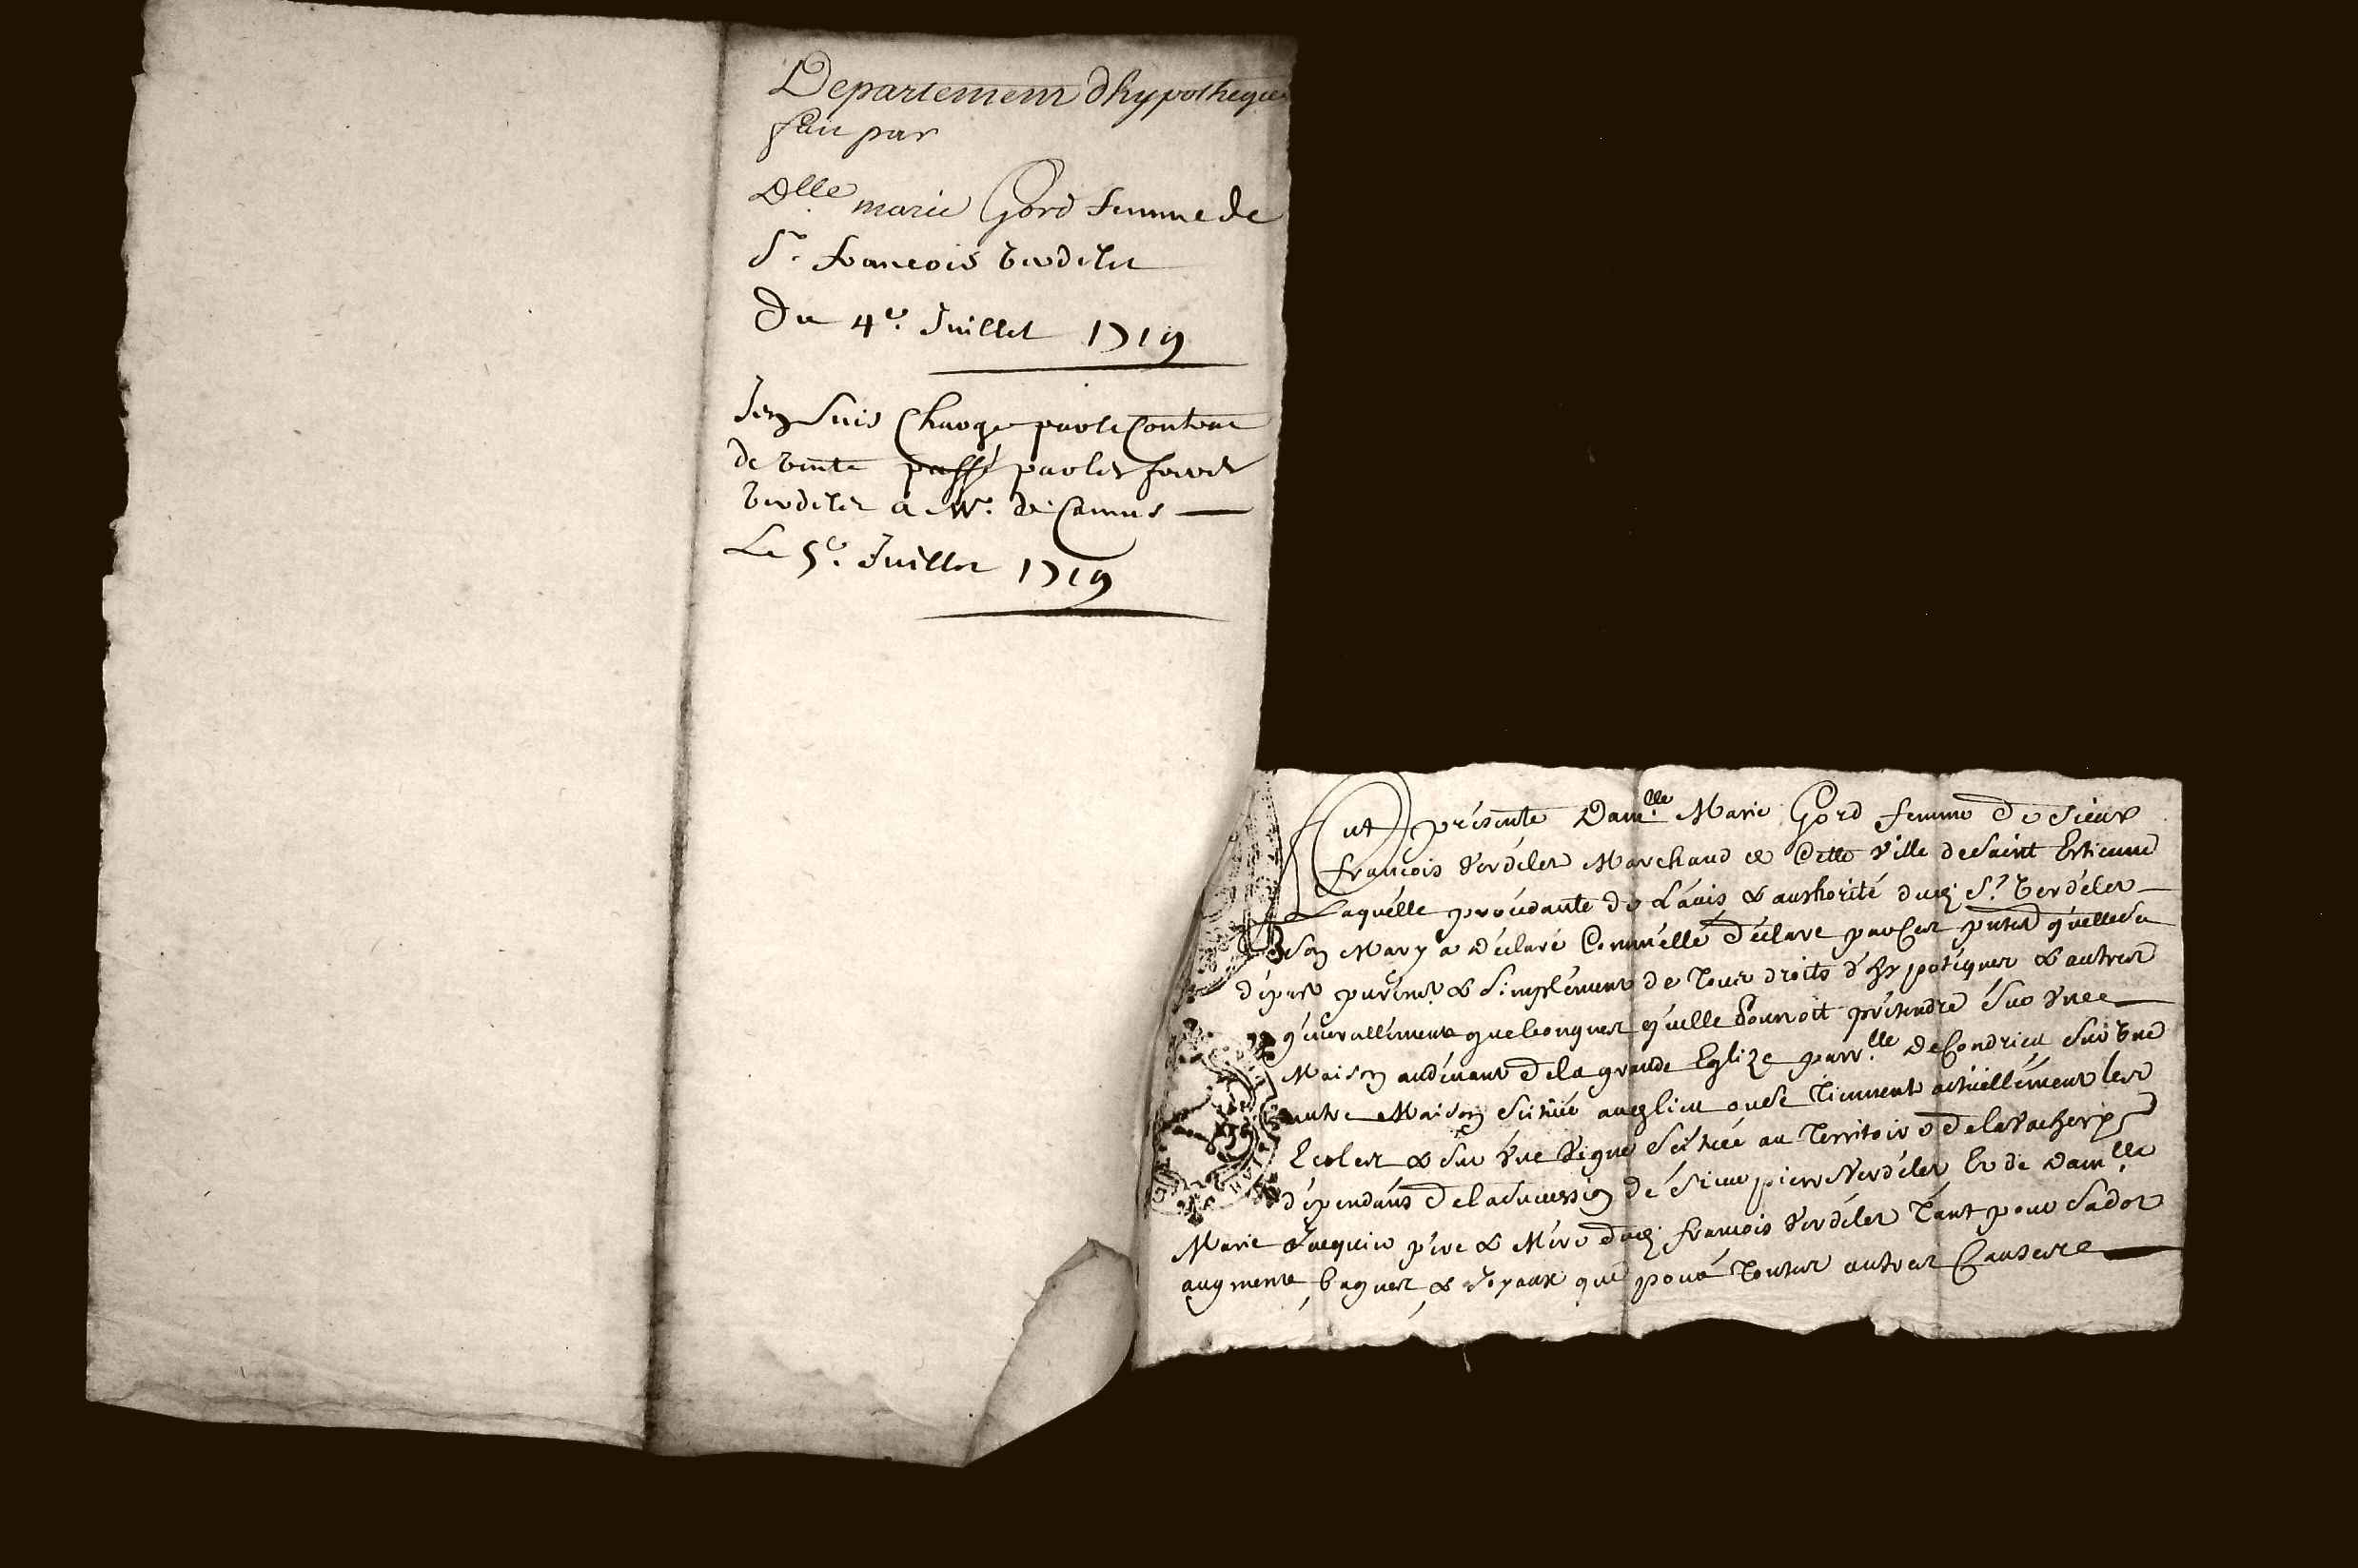 Departement dhypotheques
fait par
Dlle marie Gord femme de
Sr. francois verdelet
Du 4e. Juillet 1719
Jen suis Charge par le Contract
de vente passé par les freres
verdelet a Mr. de Camus
Le 5e. Juillet 1719
Fut présente Damlle. Marie Gord femme de sieur
francois Verdelet Marchand de Cette Ville de Saint Estienne
Laquelle procédante de L'auis & authorité dud. Sr. Verdelet
son Mary a déclaré Comm'elle déclare par Ces putes qu'elle se
départ puremt. & Simplement de Tous droits d'hypotéques & autres
généralement quelconques qu'elle Pourroit prétendre sur Vne
Maison audeuant de la grande Eglize parr.lle de Condrieu sur vne
autre Maison scituée au lieu ou se Tiennent actuellement les
Ecoles & sur Vne Vigne Scituée au Territoire de la Vacherie
dépendans de la succession de sieur pierre Verdelet Et de Damlle.
Marie Jacquier pere & Mere dud. francois Verdelet Tant pour sa dot
augment, bagues, & Joyaux que pour Toutes autres Causes